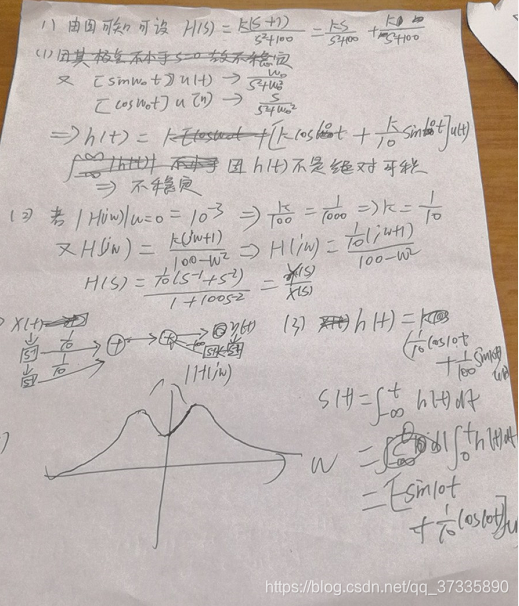 1) 由图可知可设 H(s) = k(s+1)/(s²+100) = ks/(s²+100) + k/(s²+100)
(1) 因其极点不小于s=0 故不稳定
又 [sinω₀t]u(t) → ω₀/(s²+ω₀²)
[cosω₀t]u(t) → s/(s²+ω₀²)
⇒ h(t) = [k cos10t + k/10 sin10t]u(t)
因 h(t) 不是绝对可积
⇒ 不稳定
(2) 若 |H(jw)|w=0 = 10⁻³ ⇒ k/100 = 1/1000 ⇒ k = 1/10
又 H(jw) = k(jw+1)/(100-w²) ⇒ H(jw) = 1/10(jw+1)/(100-w²)
H(s) = 1/10(s⁻¹+s⁻²)/(1+100s⁻²) = Y(s)/X(s)
X(t)
1/10
1/10
y(t)
|H(jw)|
W
(3) h(t) =
(1/10 cos10t
+ 1/100 sin10t)
S(t) = ∫₋∞ᵗ h(t)dt
= ∫₀ᵗ h(t)dt
= [sin10t
+ 1/10 cos10t]u
https://blog.csdn.net/qq_37335890